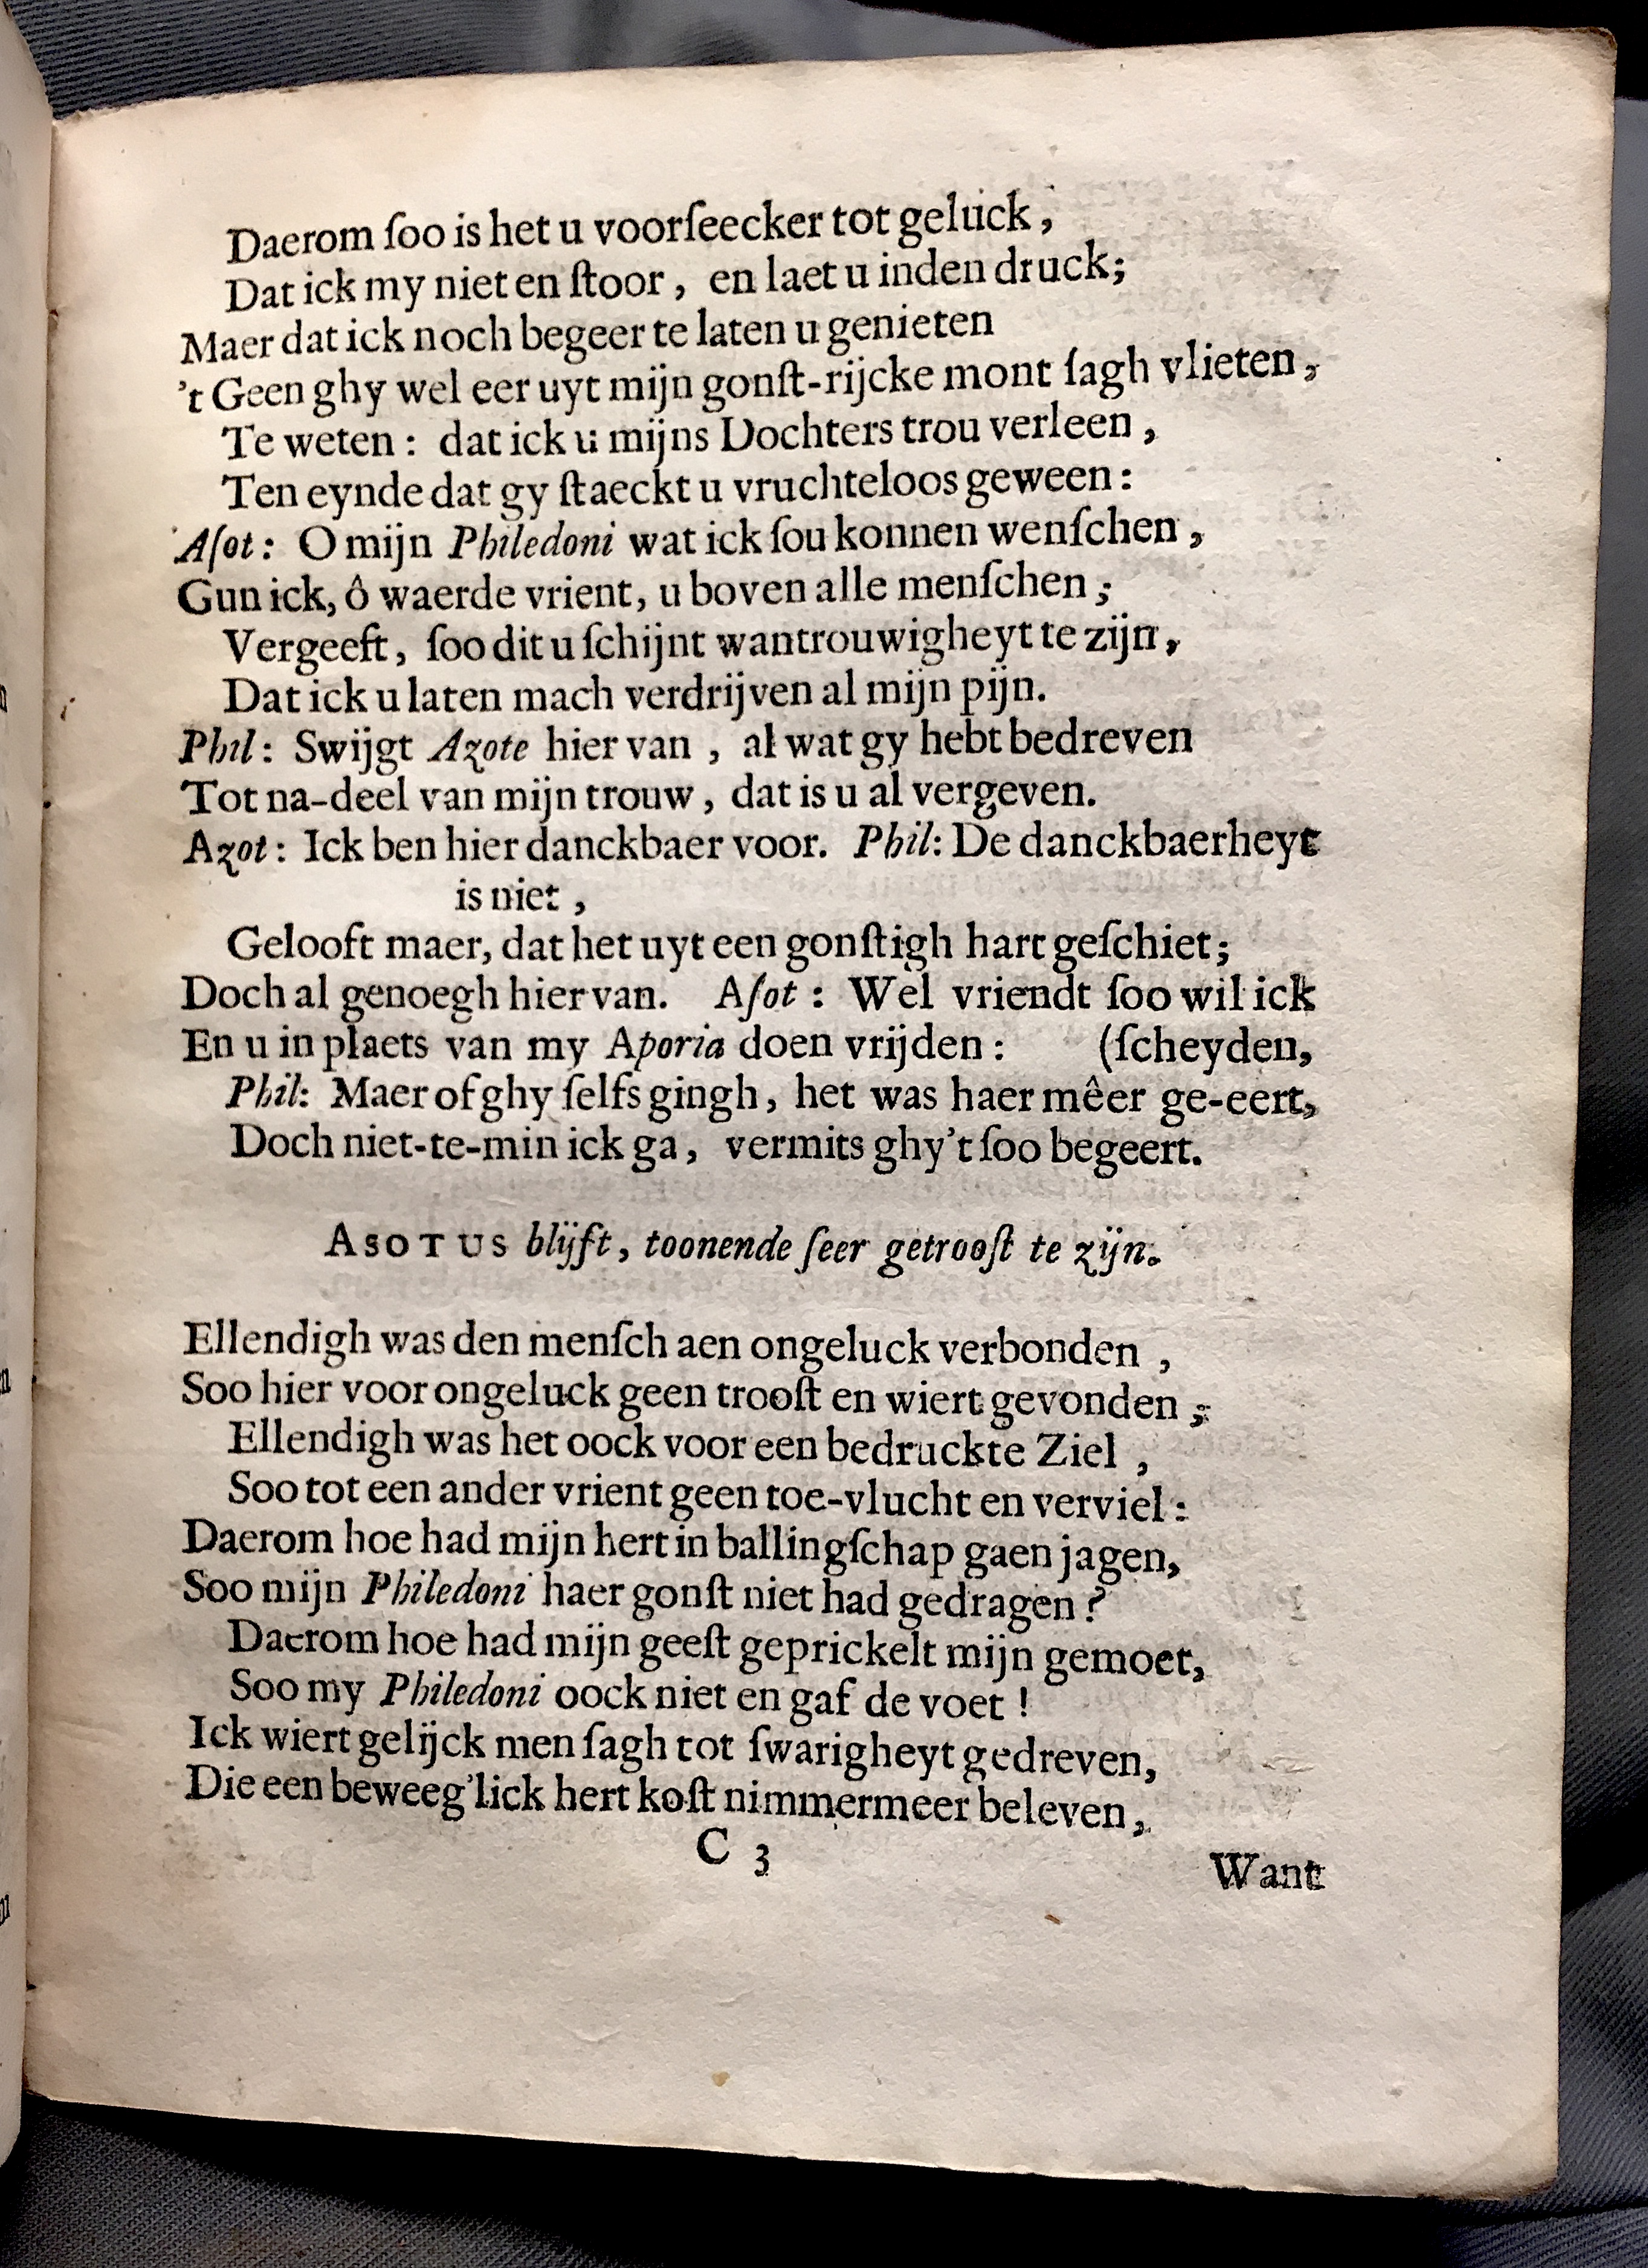 Daerom ſoo is het u voorſeecker tot geluck,
Dat ick my niet en ſtoor, en laet u inden druck;
Maer dat ick noch begeer te laten u genieten
't Geen ghy wel eer uyt mijn gonſt-rijcke mont ſagh vlieten,
Te weten: dat ick u mijns Dochters trou verleen,
Ten eynde dat gy ſtaeckt u vruchteloos geween:
Aſot: O mijn Philedoni wat ick ſou konnen wenſchen,
Gun ick, ô waerde vrient, u boven alle menſchen;
Vergeeft, ſoo dit u ſchijnt wantrouwigheyt te zijn,
Dat ick u laten mach verdrijven al mijn pijn.
Phil: Swijgt Azote hier van, al wat gy hebt bedreven
Tot na-deel van mijn trouw, dat is u al vergeven.
Azot: Ick ben hier danckbaer voor. Phil: De danckbaerheyt
is niet,
Gelooft maer, dat het uyt een gonſtigh hart geſchiet;
Doch al genoegh hier van. Aſot: Wel vriendt ſoo wil ick
En u in plaets van my Aporia doen vrijden: (ſcheyden,
Phil: Maer of ghy ſelfs gingh, het was haer mêer ge-eert,
Doch niet-te-min ick ga, vermits ghy't ſoo begeert.
ASOTUS blijft, toonende ſeer getrooſt te zijn.
Ellendigh was den menſch aen ongeluck verbonden,
Soo hier voor ongeluck geen trooſt en wiert gevonden;
Ellendigh was het oock voor een bedruckte Ziel,
Soo tot een ander vrient geen toe-vlucht en verviel:
Daerom hoe had mijn hert in ballingſchap gaen jagen,
Soo mijn Philedoni haer gonſt niet had gedragen?
Daerom hoe had mijn geeſt geprickelt mijn gemoet,
Soo my Philedoni oock niet en gaf de voet!
Ick wiert gelijck men ſagh tot ſwarigheyt gedreven,
Die een beweeg'lick hert koſt nimmermeer beleven,
C 3
Want